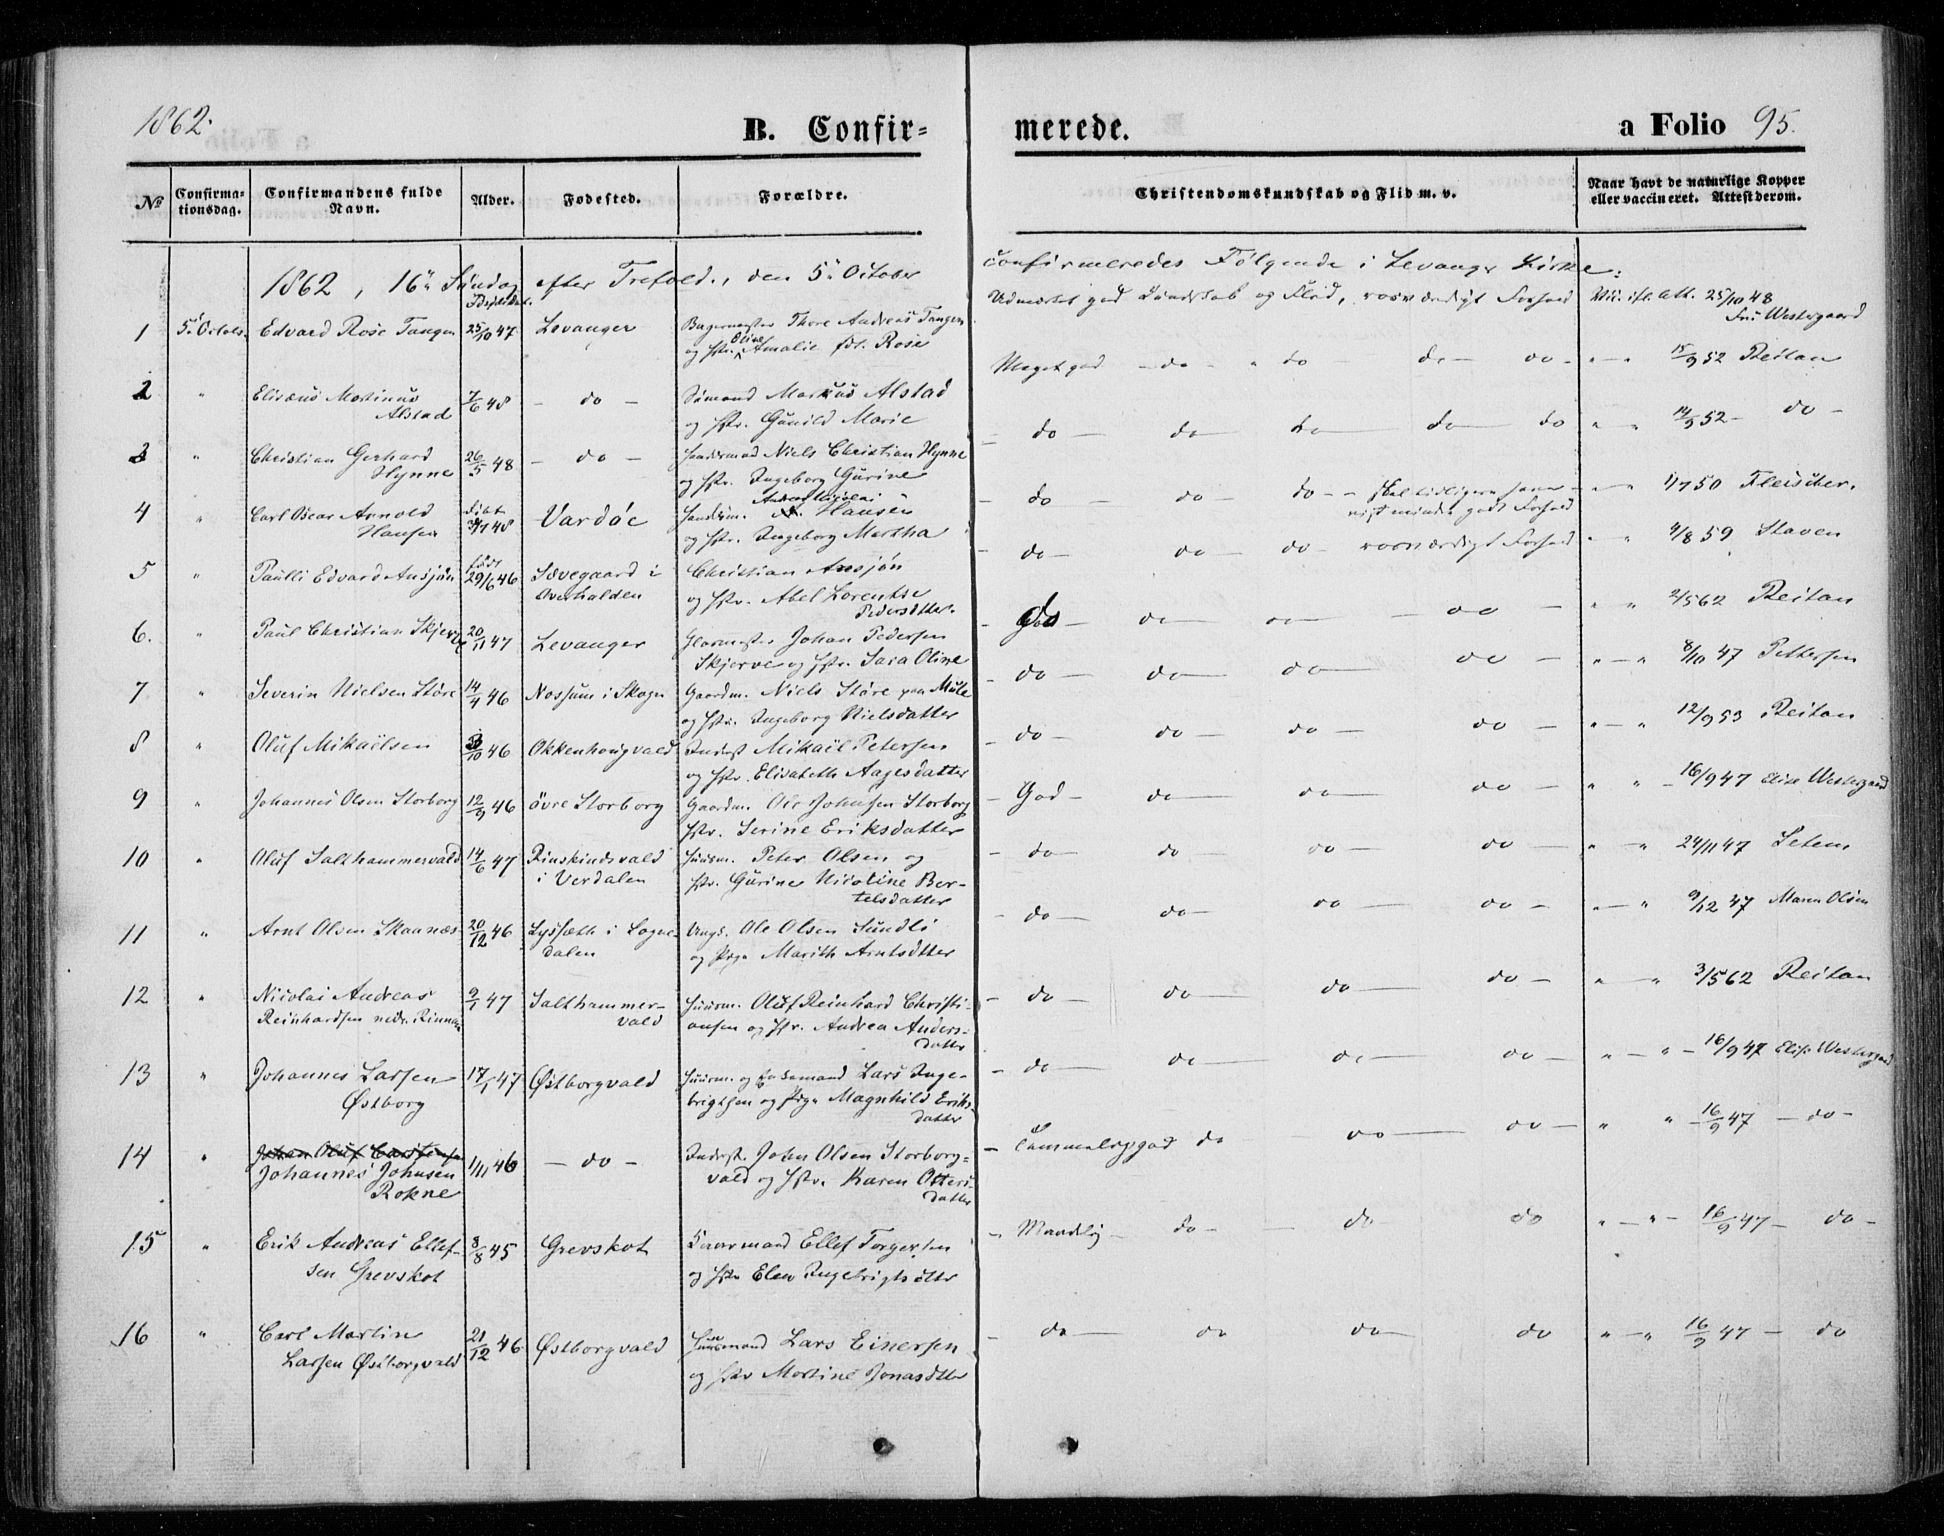 1862.
B. Confir=
merede.
a Folio 95.
No
Confirma-
tionsdag.
Confirmandens fulde
Navn.
Alder.
Fødested.
Forældre.
Christendomskundskab og Flid m. v.
Naar havt de naturlige Kopper
eller vaccineret. Attest derom.
1862, 16de Søndag efter Trefold., den 5te October
confirmeredes Følgende i Levanger Kirke:
1 5te Octob. Edvard Rose Tangen 25/10 47 Levanger Bagermester Thore Andreas Tangen
og Hstr. Oline Amalie fdt. Rose
Udmærket god Kundskab og Flid, rosværdigt Forhold
25/10 48
Westergaard
2 " Elisæus Martinus
Alstad
7/6 48 - do - Markus Alstad
og Hstr. Gunild Marie
Meget god - do - " do - do - do - " - " 15/9 52 Reitan
3 " Christian Gerhard
Hynne
26/5 48 - do - Niels Christian Hynne
og Hstr. Ingeborg Gurine
- do - do - do - do - do " - " 14/9 52 - do -
4 " Carl Oscar Arnold
Hansen
48 Vardöe Andreas Nicolai
Hansen
og Hstr. Ingeborg Martha
- do - do - do - godt Forhold
" - " 1/7 50 Fleischer.
5 " Paulli Edvard Ansjøn 29/6 46 Sævegaard i
Overhalden
Christian Ansjøn
og Hstr. Abel Lorentse
Pedersdtter.
- do - do - do - rosværdigt Forhold " - " 4/8 59 Staven
6. " Paul Christian Skjerve 20/11 47 Levanger Glarmester Johan Pedersen
Skjerve og Hstr. Sara Oline
- do - do - do - do - " " 2/5 62 Reitan
7 " Severin Nielsen Støre 14/4 46 Nossum i Skogn Gaardm. Niels Støre paa Mule
og Hstr. Ingeborg Nielsdatter
- do - do - do - do - " - " 8/10 47 Pettersen
8 " Oluf Mikaëlsen /10 46 Okkenhougvald Inderst Mikaël Petersen
og Hstr. Elisabeth Aagesdatter
- do - do - do - do - " - " 12/9 53 Reitan
9 " Johannes Olsen Storborg 12/9 46 övre Storborg Gaardm. Ole Johnsen Storborg
Hstr. Serine Eriksdatter
- God - do - do - do - " " - 16/9 47 Elise Westergaard
10 " Oluf Salthammervald 14/6 47 Rinskindsvald
i Verdalen
Huusm. Peter Olsen og
Hstr. Gurine Nicoline Ber-
telsdatter
- do - do - do - do - " - " 24/11 47 Setem
11 " Arnt Olsen Skaanæs 20/12 46 Lysfæth i Sogne-
dalen
Ungk. Ole Olsen Sundli
og Pige Marith Arntsdtter
- do - do - do - do - " - " 9/12 47 Maren Olsen
12 " Nicolai Andreas
Reinhardsen nedr. Rinnan
9/1 47 Salthammer-
vald
Huusm. Oluf Reinhard Christi-
ansen og Hstr. Andrea Anders-
datter
- do - do - do - do - " - " 3/5 62 Reitan
13 " Johannes Larsen
Østborg
17/1 47 Østborgvald Huusm. og Lars Inge-
brigtsen og Pige Magnhild Eriks-
datter
- do - do - do - do - " - " - 16/9 47 Elise Westergaard
14 " Johan Oluf Carstensen
Johannes Johnsen
Rokne
1/11 46 - do - Inderst. John Olsen Storborg-
vald og Hstr. Karen Otters-
datter
- Temmelig god do - do - do - " " 16/9 47 - do -
15 " Erik Andreas Ellef-
sen Grevskot
8/8 45 Grevskot Ellef Torgersen
og Hstr Elen Ingebrigtsdtter
- Maadelig - do - - do do " - " - 16/9 47 - do -
16 " Carl Martin
Larsen Østborgvald
21/12 46 Østborgvald Huusmand Lars Einersen
og Hstr Martine Jonasdtter
- do - do do - do " - " 16/9 47 - do